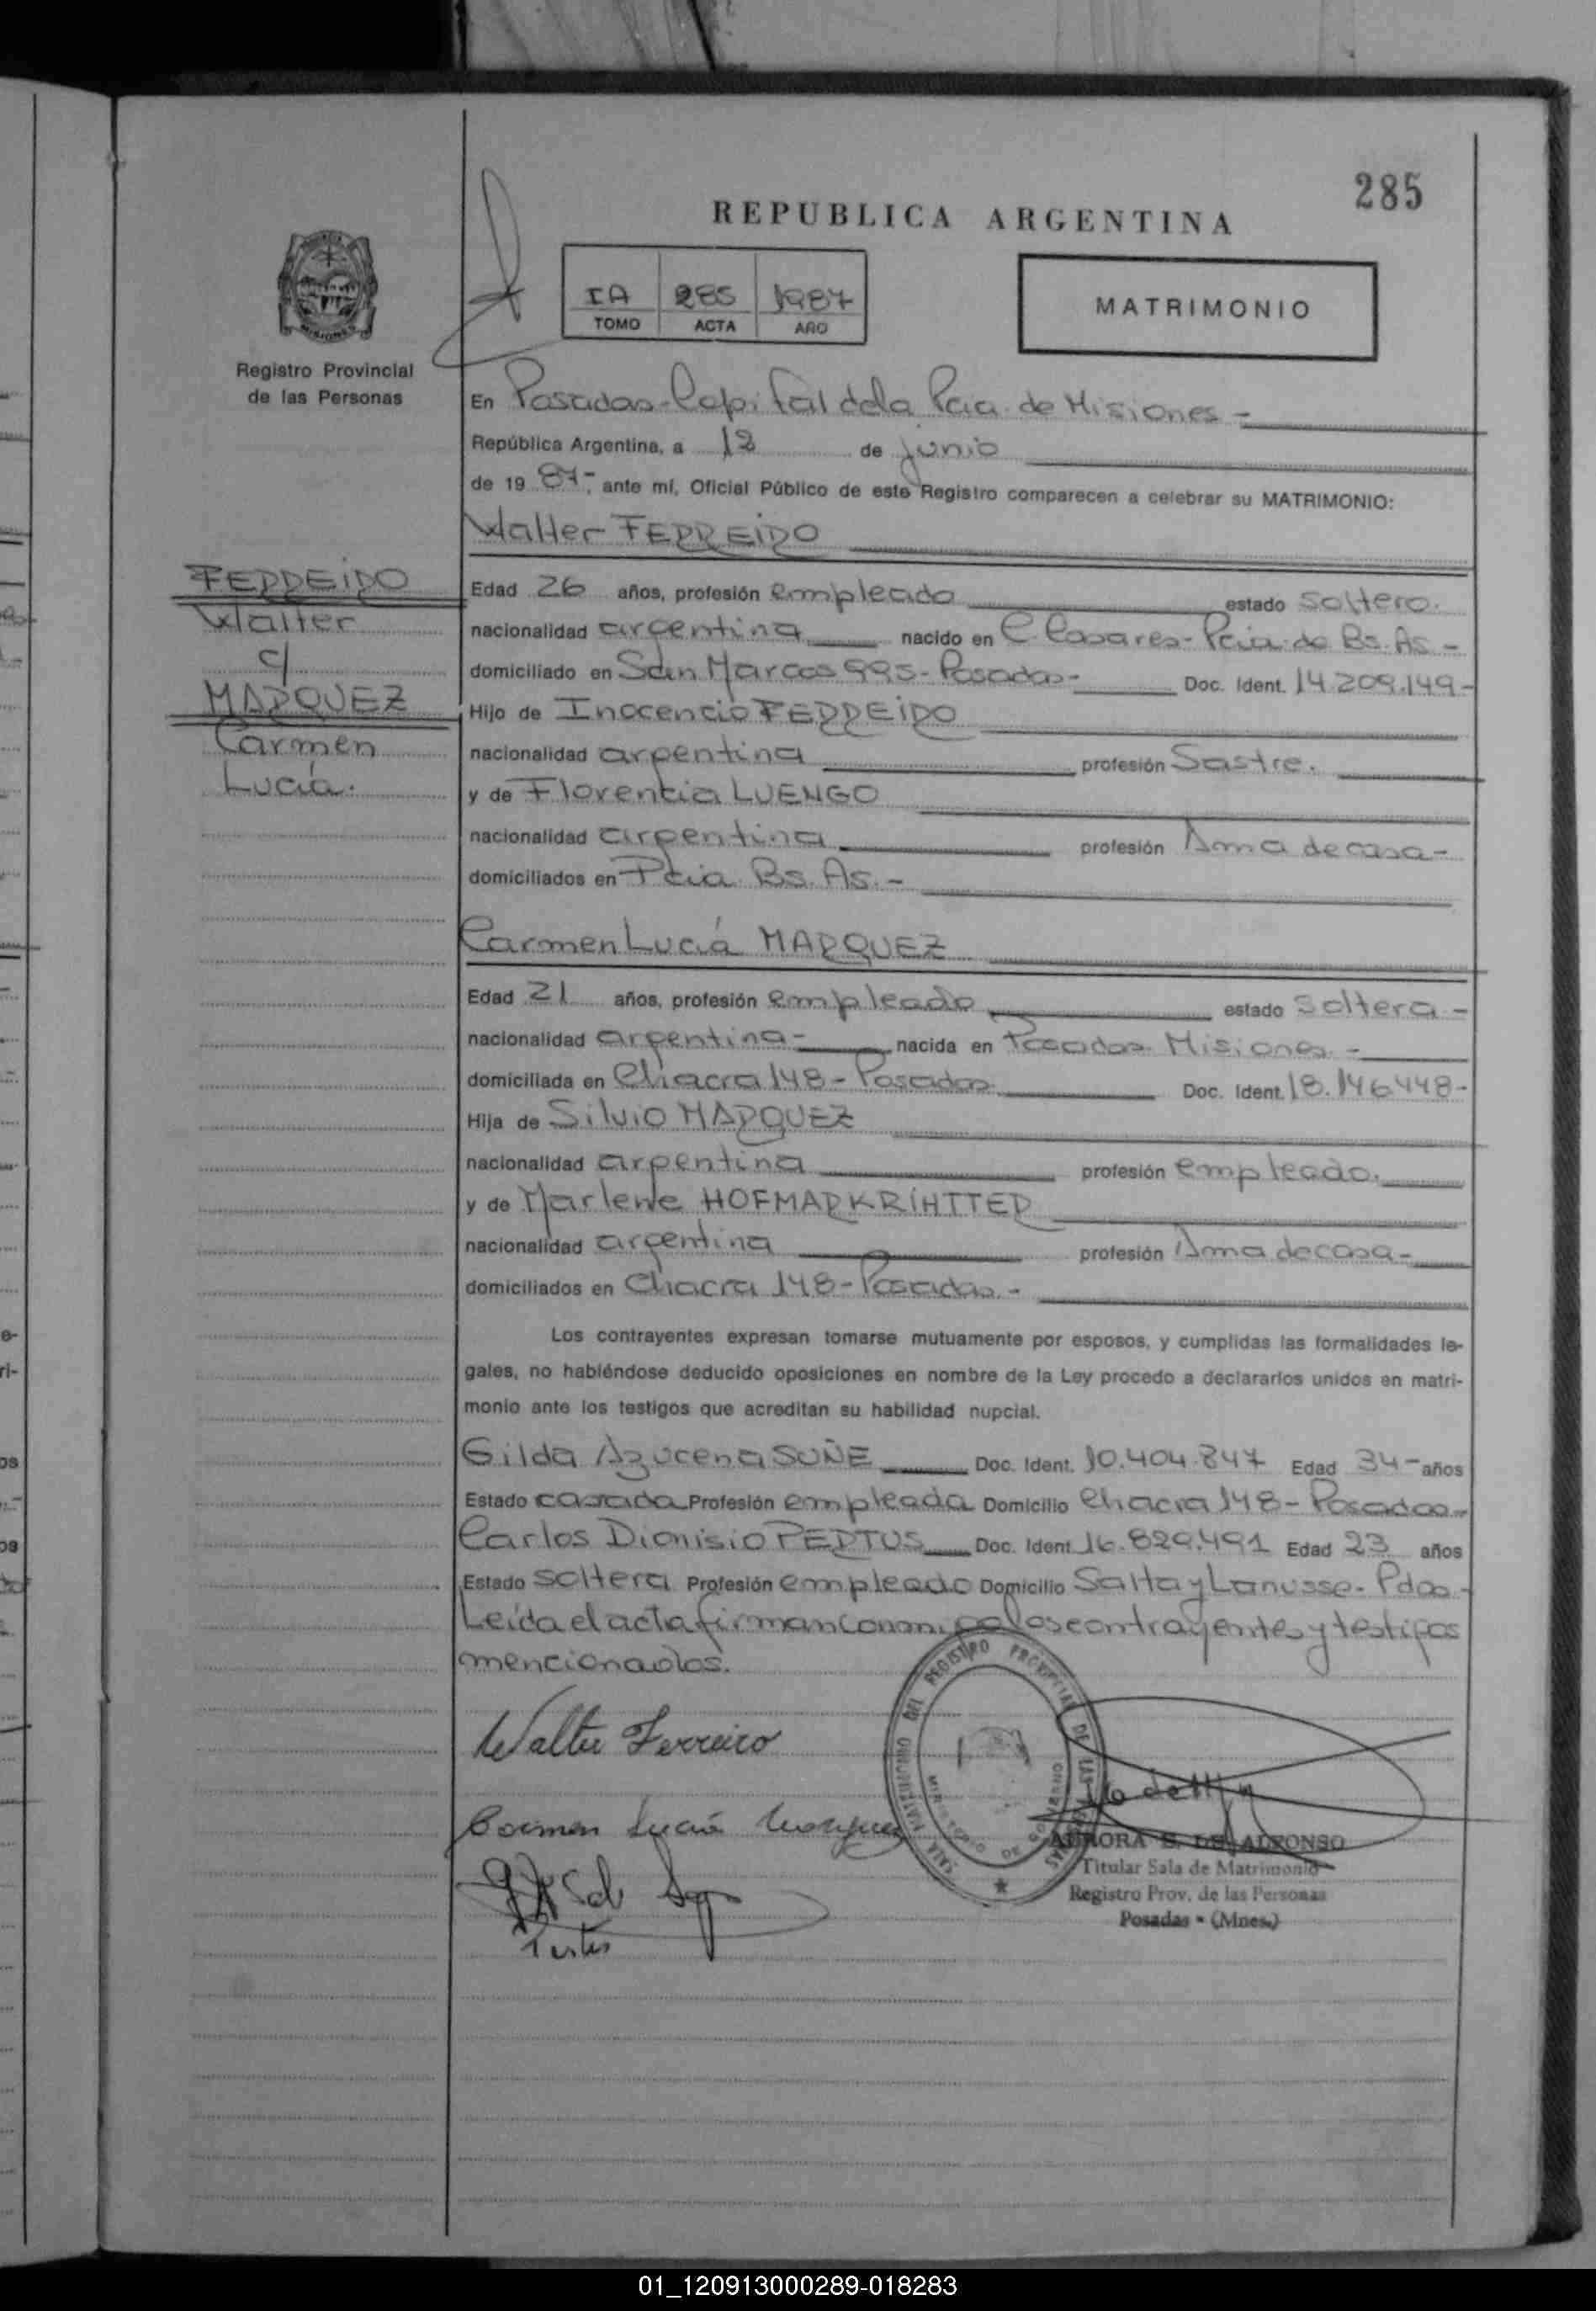 285
REPUBLICA ARGENTINA
IA 285 1987
TOMO ACTA AÑO
MATRIMONIO
Registro Provincial
de las Personas
En Posadas-Capital dela Pcia. de Misiones -
República Argentina, a 12 de junio
de 19 87-, ante mí, Oficial Público de este Registro comparecen a celebrar su MATRIMONIO:
Walter FERREIRO
FERREIRO
Walter
c/
MARQUEZ
Carmen
Lucía.
Edad 26 años, profesión empleado estado soltero.
nacionalidad argentina nacido en C. Casares- Pcia. de Bs. As -
domiciliado en San Marcos 995- Posadas- Doc. Ident. 14.209.149-
Hijo de Inocencio FERREIRO
nacionalidad argentina profesión Sastre.
y de Florencia LUENGO
nacionalidad argentina profesión Ama de casa-
domiciliados en Pcia. Bs. As. -
Carmen Lucía MARQUEZ
Edad 21 años, profesión empleado estado soltera -
nacionalidad argentina- nacida en Posadas Misiones -
domiciliada en Chacra 148 - Posadas Doc. Ident. 18.146.448-
Hija de Silvio MARQUEZ
nacionalidad argentina profesión empleado.
y de Marlene HOFMARKRIHTTER
nacionalidad argentina profesión Ama de casa-
domiciliados en Chacra 148-Posadas -
Los contrayentes expresan tomarse mutuamente por esposos, y cumplidas las formalidades le-
gales, no habiéndose deducido oposiciones en nombre de la Ley procedo a declararlos unidos en matri-
monio ante los testigos que acreditan su habilidad nupcial.
Gilda Azucena SUÑE Doc. Ident. 10.404.847 Edad 34- años
Estado casada Profesión empleada Domicilio Chacra 148- Posadas-
Carlos Dionisio PERTUS Doc. Ident. 16.829.491 Edad 23 años
Estado soltera Profesión empleado Domicilio Salta y Lanusse- Pdas -
Leída el acta firman conmigo los contrayentes y testigos
mencionados.
Walter Ferreiro
Carmen Lucía Marquez
Pertus
SALA MATRIMONIOS DEL REGISTRO PROVINCIAL DE LAS PERSONAS
MINISTERIO DE GOBIERNO
AURORA S. DE ALFONSO
Titular Sala de Matrimonio
Registro Prov. de las Personas
Posadas - (Mnes.)
01_120913000289-018283